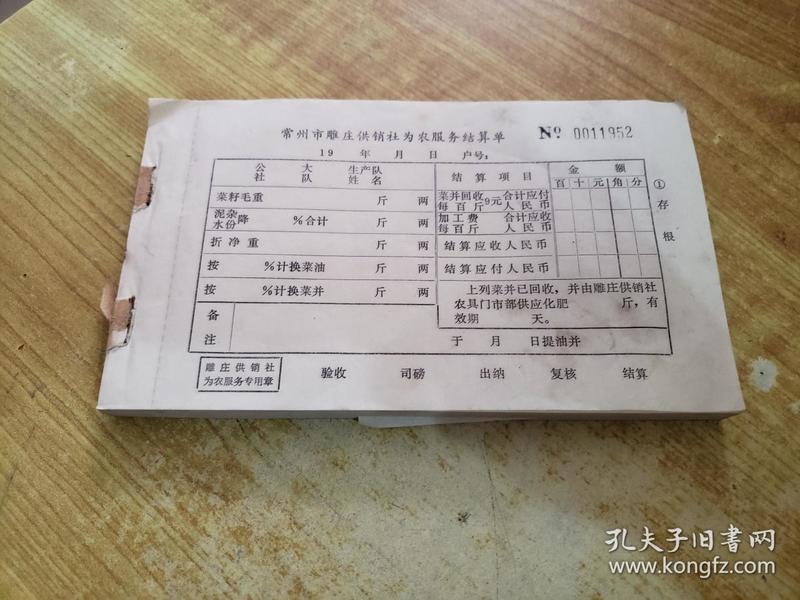 常州市雕庄供销社为农服务结算单
№ 0011952
19 年 月 日 户号：
公社 大队 生产队姓名
菜籽毛重 斤 两
泥杂水份降 %合计 斤 两
折净重 斤 两
按 %计换菜油 斤 两
按 %计换菜并 斤 两
备注
结算项目 金额
百 十 元 角 分
菜并回收每百斤9元 合计应付人民币
加工费每百斤 合计应收人民币
结算应收人民币
结算应付人民币
上列菜并已回收，并由雕庄供销社
农具门市部供应化肥 斤，有
效期 天。
于 月 日提油并
①存根
雕庄供销社
为农服务专用章
验收 司磅 出纳 复核 结算
孔夫子旧书网
www.kongfz.com